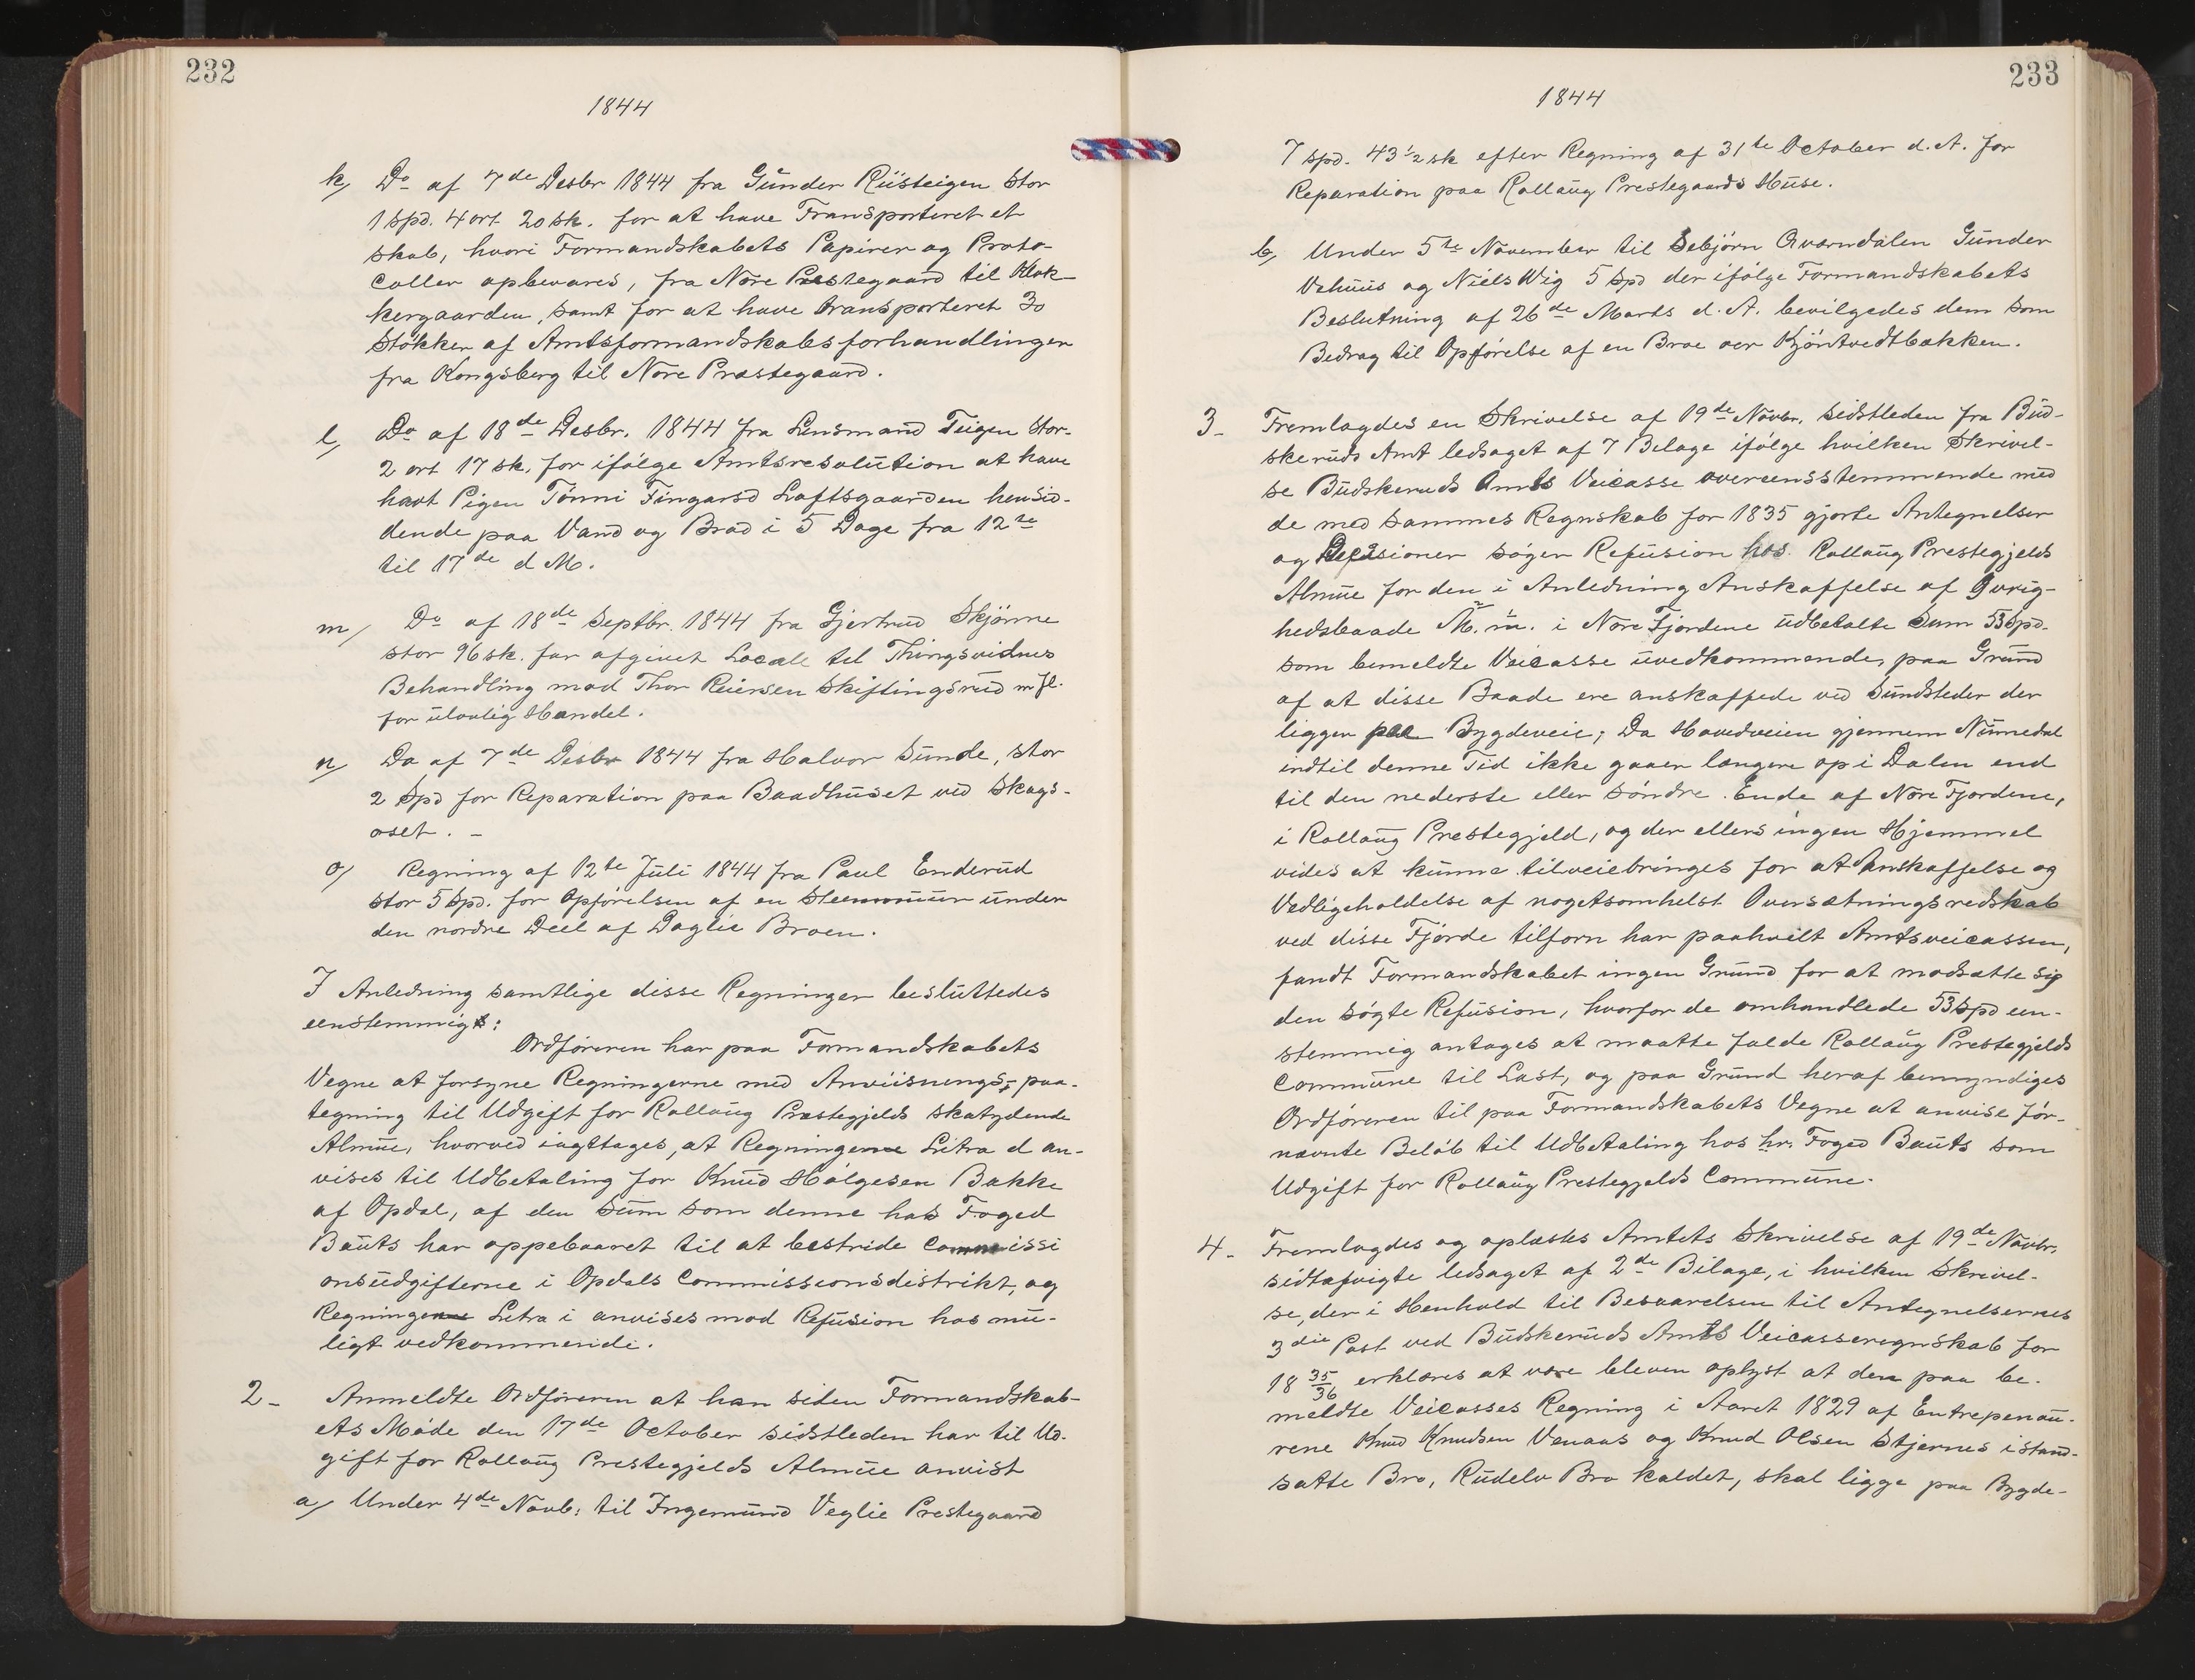 232
1844
k/ Do af 7de Desbr 1844 fra Gunder Rüsteigen Stor
1 spd. 4 ort 20 sk. for at have Transporteret et
skab, hvori Formandskabets Papirer og Proto-
coller opbevares, fra Nore Prestegaard til Klok-
kergaarden, samt for at have transporteret 30
Stökker af Amtsformandskabsforhandlinger
fra Kongsberg til Nore Præstegaard.
l/ Do af 18de Desbr. 1844 fra Lensmand Teigen Stor-
2 ort 17 sk. for ifölge Amtsresolution at have
havt Pigen Tönni Fingarsd Loftsgaarden hensid-
dende paa Vand og Brød i 5 Dage fra 12te
til 17de d M.
m/ Do af 18de Septbr. 1844 fra Gjertrud Skjönne
stor 96 sk. for afgivet Locale til Thingsvidnes
Behandling mod Thor Reiersen Skiftingsrud m fl.
for ulovlig Handel.
n/ Do af 7de Desbr 1844 fra Halvor Sunde, stor
2 Spd for Reparation paa Baadhuset ved Skogs-
oset. -
o/ Regning af 12te Juli 1844 fra Paul Enderud
stor 5 Spd. for Opförelsen af en Steenmuur under
den nordre Deel af Daglie Broen.
I Anledning samtlige disse Regninger besluttedes
eenstemmigt:
Ordföreren har paa Formandskabets
Vegne at forsyne Regningerne med Anviisnings- paa-
tegning til Udgift for Rollaug Prestegjelds skatydende
Almue, hvorved iagttages, at Regningerne Litra d an-
vises til Udbetaling for Knud Hölgesen Bakke
af Opdal, af den Sum som denne hos Foged
Bauts har oppebaaret til at bestride Commissi
onsudgifterne i Opdals Commissionsdistrikt, og
Regningerne Litra i anvises mod Refusion hos mu-
ligt vedkommende.
2- Anmeldte Ordföreren at han siden Formandskab-
ets Møde den 17de October sidstleden har til Ud-
gift for Rollaug Prestegjelds Almue anvist
a/ Under 4de Novb: til Ingemund Veglie Prestegaard
233
1844
7 spd. 43 1/2 sk efter Regning af 31te October d. A. for
Reparation paa Rollaug Prestegaards Huse.
b/ Under 5te November til Sebjörn Qværndalen Gunder
Vehuus og Niels Wig 5 Spd der ifölge Formandskabets
Beslutning af 26de Marts d. A. bevilgedes dem som
Bedrag til Opförelse af en Broe over Kjöntvedtbækken.
3- Fremlagdes en Skrivelse af 19de Novbr. sidstleden fra Bud-
skeruds Amt ledsaget af 7 Belage ifölge hvilken Skrivel-
se Budskeruds Amts Veicasse overeensstemmende med
de med sammes Regnskab for 1835 gjorte Antegnelser
og Decisioner söger Refusion hos Rollaug Prestegjelds
Almue for den i Anledning Anskaffelse af Øvrig-
hedsbaade M. m. i Nore Fjordene udbetalte Sum 53 Spd.
som bemeldte Veicasse uvedkommende, paa Grund
af at disse Baade ere anskaffede ved Sundsteder der
ligger paa Bygdeveie; Da Hovedveien gjennem Numedal
indtil denne Tid ikke gaaer længere op i Dalen end
til den nederste eller söndre Ende af Nore Fjordene,
i Rollaug Prestegjeld, og der ellers ingen Hjemmel
vides at kunne tilveiebringes for at Anskaffelse og
Vedligeholdelse af nogetsomhelst Oversætningsredskab
ved disse Fjorde tilforn har paahvilt Amtsveicassen,
fandt Formandskabet ingen Grund for at modsætte sig
den sögte Refusion, hvorfor de omhandlede 53 Spd een-
stemmig antages at maatte falde Rollaug Prestegjelds
Commune til Last, og paa Grund heraf bemyndiges
Ordföreren til paa Formandskabets Vegne at anvise för-
nævnte Belöb til Udbetaling hos hr. Foged Bauts som
Udgift for Rollaug Prestegjelds Commune.
4- Fremlagdes og oplæstes Amtets Skrivelse af 19de Novbr.
sidtafvigte ledsaget af 2de Bilage, i hvilken Skrivel-
se, der i Henhold til Besvarelsen til Antegnelsernes
3die Post ved Budskeruds Amts Veicasseregnskab for
18 35/36 erklæres at være bleven oplyst at den paa be-
meldte Veicasses Regning i Aaret 1829 af Entrepenöu-
rene Knud Knudsen Venaas og Knud Olsen Stjernes istand-
satte Bro, Rudelv Bro kaldet, skal ligge paa Bygde-